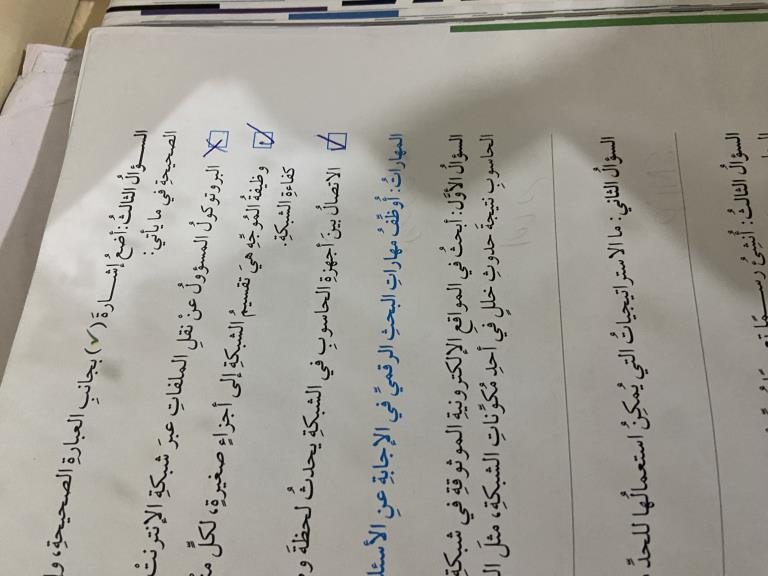 السؤالُ الثالثُ: أضعُ إشارةَ (✓) بجانبِ العبارةِ الصحيحةِ، وإ
الصحيحةِ في ما يأتي:
البروتوكولُ المسؤولُ عنْ نقلِ الملفاتِ عبرَ شبكةِ الإنترنتْ
وظيفةُ المُوجِّهِ هيَ تقسيمُ الشبكةِ إلى أجزاءٍ صغيرةٍ، لكلٍّ
كفاءةِ الشبكةِ.
الاتصالُ بينَ أجهزةِ الحاسوبِ في الشبكةِ يحدثُ لحظةَ
المهاراتُ: أُوظِّفُ مهاراتِ البحثِ الرقميِّ في الإجابةِ عنِ
السؤالُ الأوَّلُ: أبحثُ في المواقعِ الإلكترونيةِ الموثوقةِ في شبكةِ
الحاسوبِ نتيجةَ حدوثِ خللٍ في أحدِ مُكوِّناتِ الشبكةِ، مثلَ
السؤالُ الثاني: ما الاستراتيجياتُ التي يُمكِنُ استعمالُها للحدِّ
السؤالُ الثالثُ: أُنشِئُ